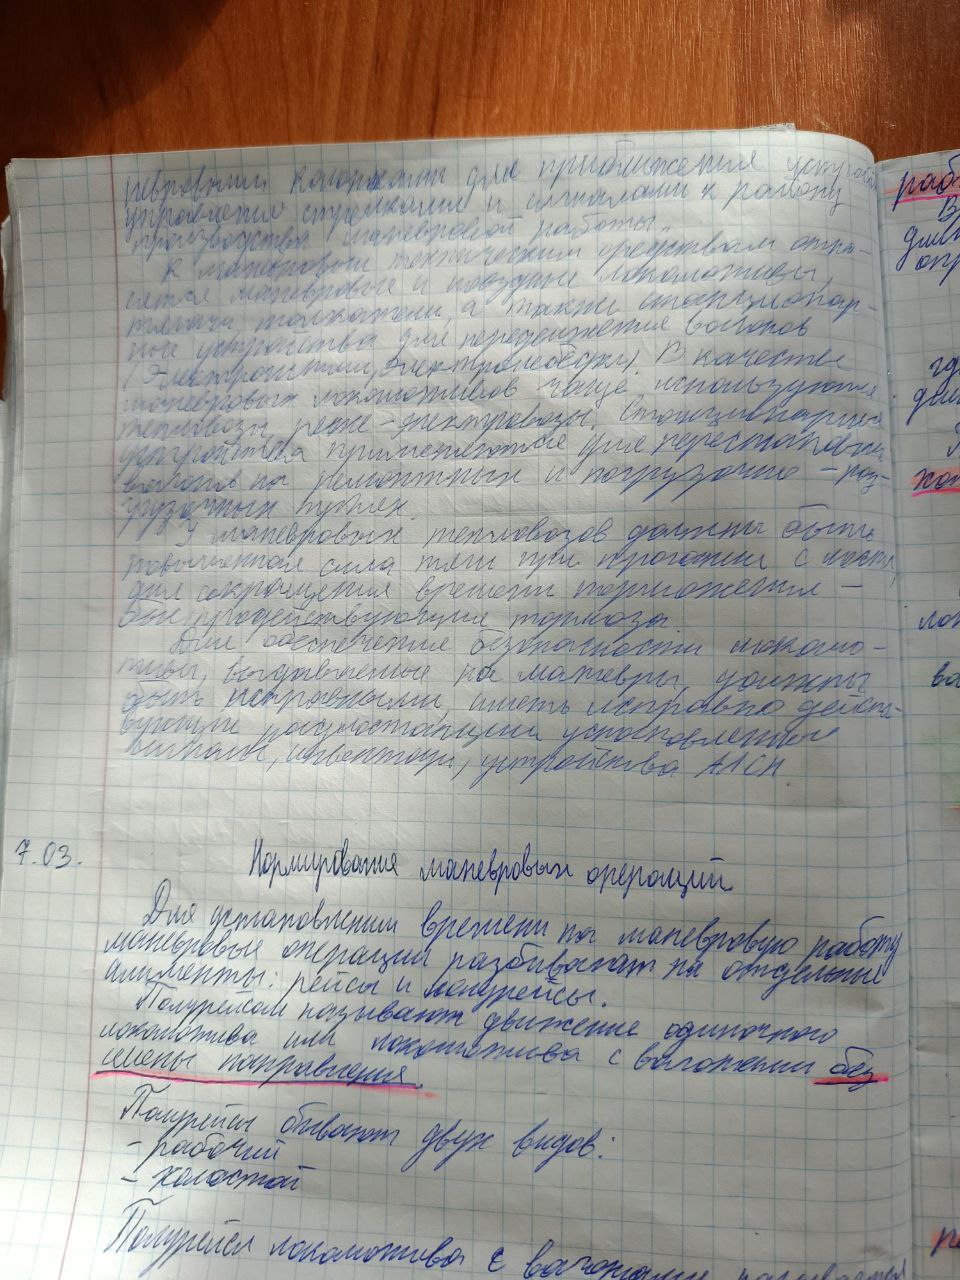 невровыми колонками для приближения устройс
управления стрелками и сигналами к району
производства маневровой работы.
К маневровым техническим средствам отно-
сятся маневровые и поездные локомотивы,
тягачи, толкатели, а также стационар-
ные устройства для передвижения вагонов
(Электрошпили, Электролебёдки). В качестве
маневровых локомотивов чаще используются
тепловозы реже - электровозы. Стационарные
устройства применяются для перестановки
вагонов на ремонтных и погрузочно - раз-
грузочных путях.
У маневровых тепловозов должны быть
повышенная сила тяги при трогании с места,
для сокращения времени торможения -
тормоза
Для обеспечения безопасности локомо-
тивы, выдаваемые на маневры, должны
быть исправными, иметь исправно дейст-
вующие радиостанции установленные
сигналы, инвентарь, устройства АЛСН.
7.03.
Нормирование маневровых операций
Для установления времени на маневровую работу
маневровые операции разбивают на отдельные
алименты: рейсы и полурейсы.
Полурейсом называют движение одиночного
локомотива или локомотива с вагонами без
смены направления.
Полурейсы бывают двух видов:
- рабочий
- холостой
Полурейсы локомотива с вагонами называется
раб
В
дли
опр
дли
хол
лок
ва